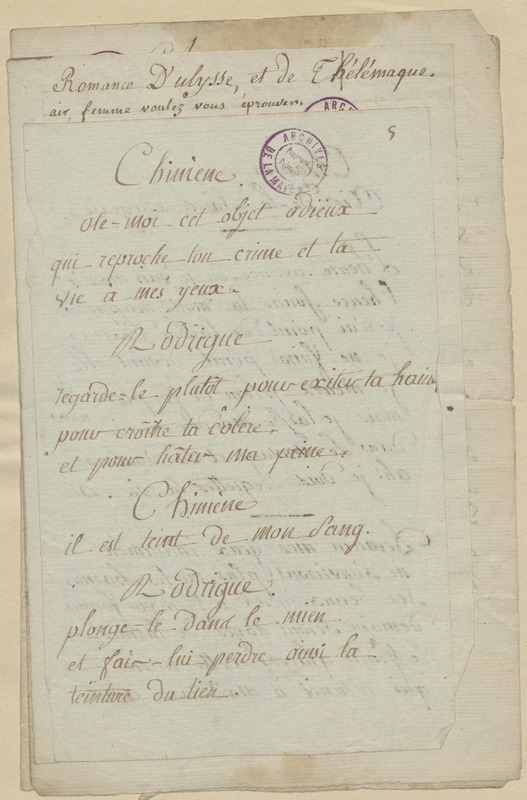 Romance D'ulysse, et de Thélémaque.
air, femme voulez vous éprouver
5
ARCHIVES
DE LA MAYENNE
Chimene.
ote-moi cet objet odieux
qui reproche ton crime et ta
vie à mes yeux.
Rodrigue
regarde-le plutôt pour exiter ta hain
pour croître ta colère,
et pour hâter ma peine.
Chimene
il est teint de mon sang.
Rodrigue.
plonge-le dans le mien
et fais-lui perdre ainsi la
teinture du tien.